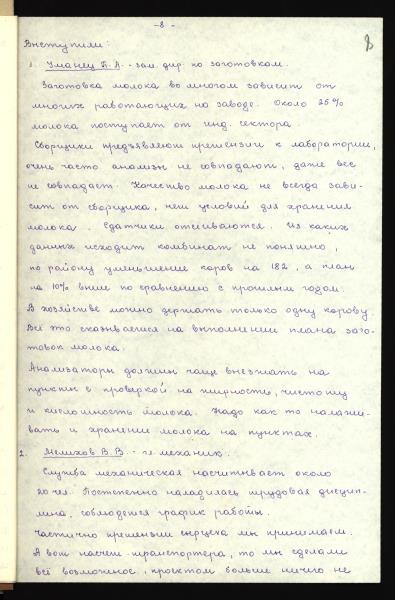 - 8 -
8
Выступили:
1. Уманец П.А. - зам. дир. по заготовкам.
Заготовка молока во многом зависит от
многих работающих на заводе. Около 25%
молока поступает от инд. сектора.
Сборщики предъявляют претензии к лаборатории,
очень часто анализы не совпадают, даже вес
не совпадает. Качество молока не всегда зави-
сит от сборщика, нет условий для хранения
молока. Сдатчики отсеиваются. Из каких
данных исходит комбинат не понятно,
по району уменьшение коров на 182, а план
на 10% выше по сравнению с прошлым годом.
В хозяйстве можно держать только одну корову
Всё это сказывается на выполнении плана заго-
товок молока.
Анализаторы должны чаще выезжать на
пункты с проверкой на жирность, чистоту
и кислотность молока. Надо как то налажи-
вать и хранение молока на пунктах.
2. Мелихов В.В. - гл. механик.
Служба механическая насчитывает около
20 чел. Постепенно наладилась трудовая дисцип-
лина, соблюдется график работы.
Частично претензии сырцеха мы принимаем.
А вот насчет транспортера, то мы сделали
всё возможное, проектом больше ничего не